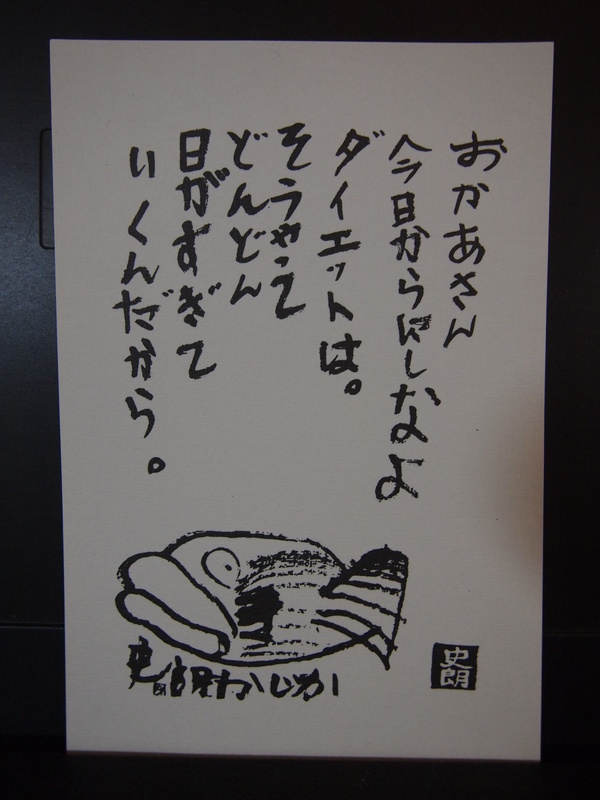 おかあさん
今日からにしなよ
ダイエットは。
そうやって
どんどん
日がすぎて
いくんだから。
かじか
史朗